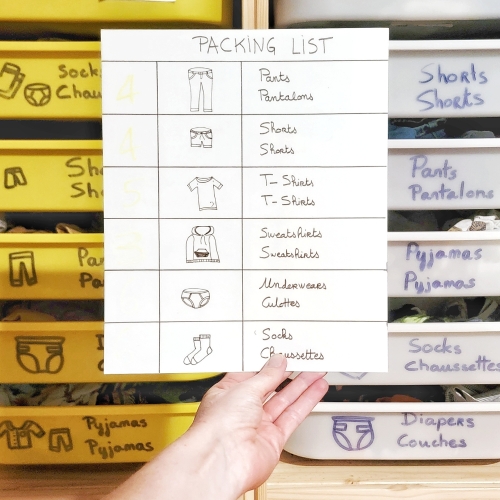 PACKING LIST
4
Pants
Pantalons
4
Shorts
Shorts
5
T-Shirts
T-Shirts
Sweatshirts
Sweatshirts
Underwears
Culottes
Socks
Chaussettes
Socks
Chau
Sho
Sho
Pa
Pa
Pyjamas
Pyjamas
Shorts
Shorts
Pants
Pantalons
Pyjamas
Pyjamas
Socks
Chaussettes
Diapers
Couches